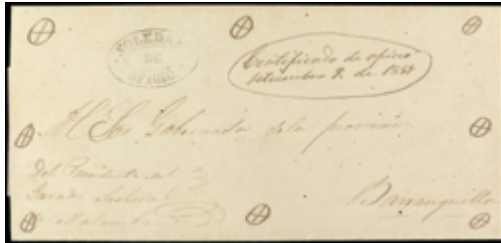 SOLEDAD
DE
OFICIO
Certificado de oficio
setiembre 9. de 1857
Al Sor Gobernador de la provincia
Del Presidente del
Barranquilla
de Malambo